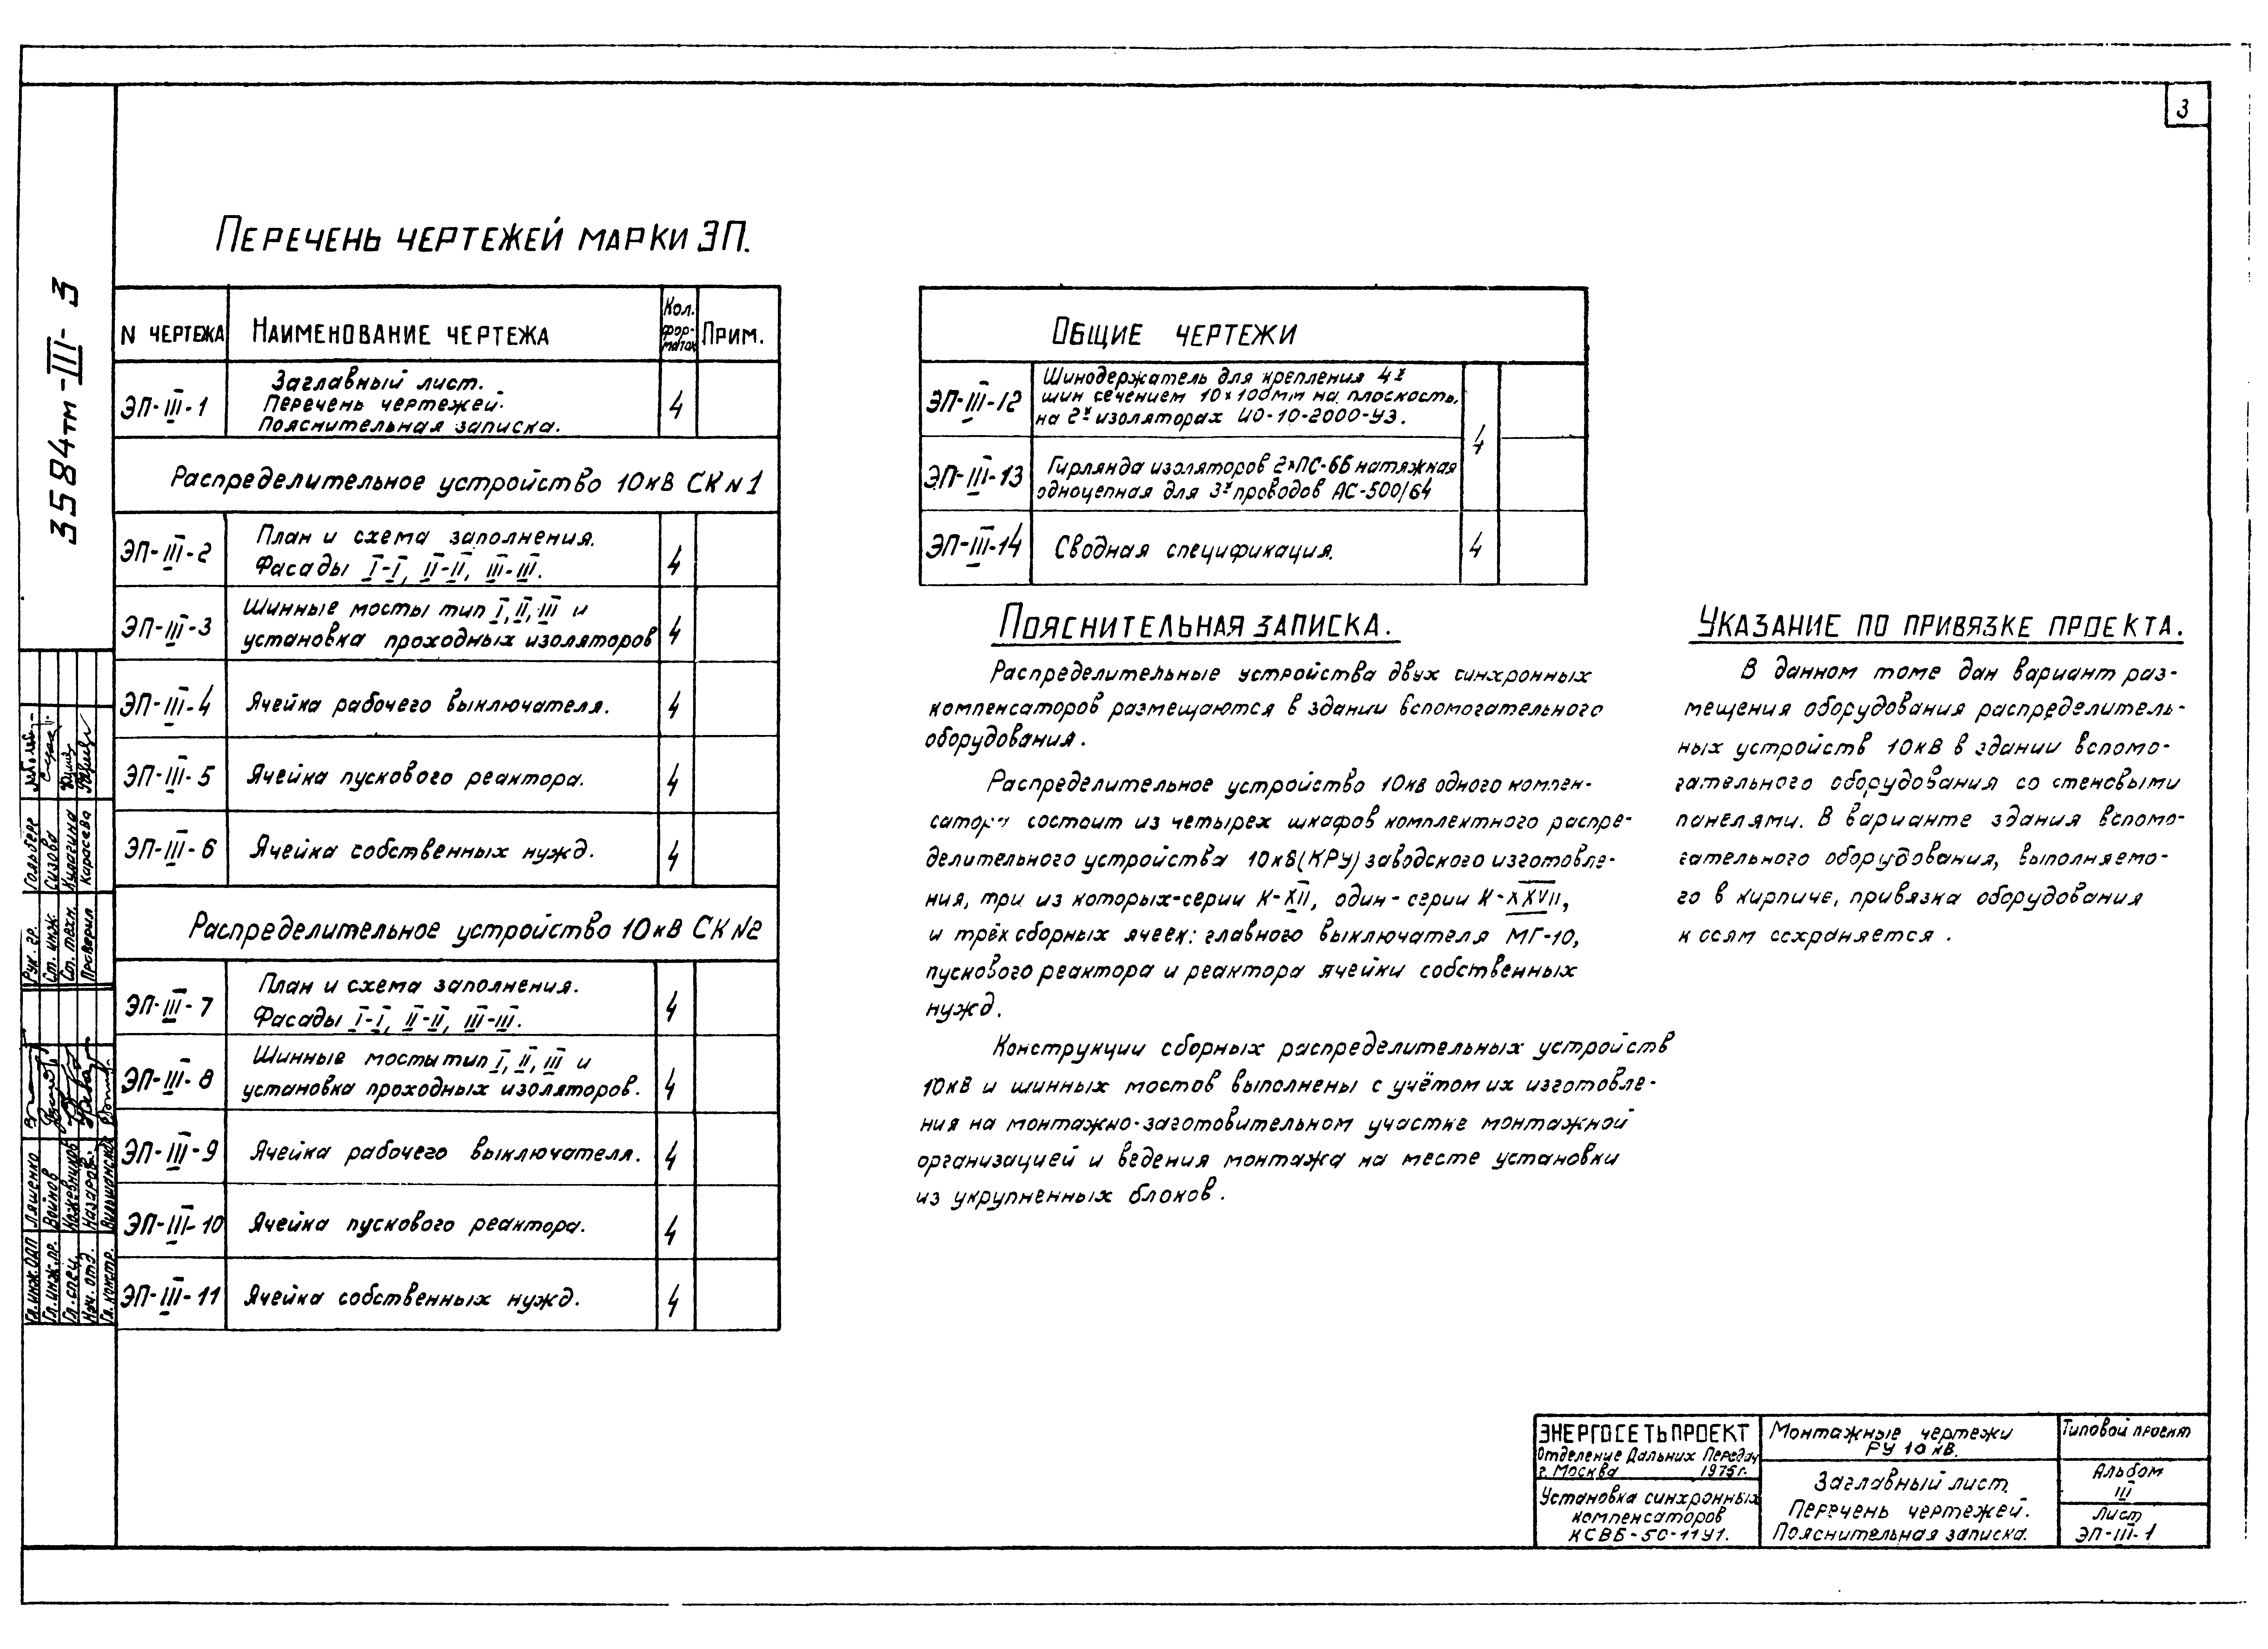 3
3584тм-III-3
Перечень чертежей марки ЭП.
N чертежа
Наименование чертежа
Кол.
фор-
маток
Прим.
ЭП-III-1
Заглавный лист.
Перечень чертежей.
Пояснительная записка.
4
Распределительное устройство 10кВ СК N1
ЭП-III-2
План и схема заполнения.
Фасады I-I, II-II, III-III.
4
ЭП-III-3
Шинные мосты тип I, II, III и
установка проходных изоляторов
4
ЭП-III-4
Ячейка рабочего выключателя.
4
ЭП-III-5
Ячейка пускового реактора.
4
ЭП-III-6
Ячейка собственных нужд.
4
Распределительное устройство 10кВ СК N2
ЭП-III-7
План и схема заполнения.
Фасады I-I, II-II, III-III.
4
ЭП-III-8
Шинные мосты тип I, II, III и
установка проходных изоляторов.
4
ЭП-III-9
Ячейка рабочего выключателя.
4
ЭП-III-10
Ячейка пускового реактора.
4
ЭП-III-11
Ячейка собственных нужд.
4
Общие чертежи
ЭП-III-12
Шинодержатель для крепления 4х
шин сечением 10х100мм на плоскость,
на 2х изоляторах ИО-10-2000-У3.
4
ЭП-III-13
Гирлянда изоляторов 2хПС-6Б натяжная
одноцепная для 3х проводов АС-500/64
ЭП-III-14
Сводная спецификация.
4
Пояснительная записка.
Распределительные устройства двух синхронных
компенсаторов размещаются в здании вспомогательного
оборудования.
Распределительное устройство 10кв одного компен-
сатора состоит из четырех шкафов комплектного распре-
делительного устройства 10кВ(КРУ) заводского изготовле-
ния, три из которых-серии К-XII, один-серии К-XXVII,
и трёх сборных ячеек: главного выключателя МГ-10,
пускового реактора и реактора ячейки собственных
нужд.
Конструкции сборных распределительных устройств
10кВ и шинных мостов выполнены с учётом их изготовле-
ния на монтажно-заготовительном участке монтажной
организацией и ведения монтажа на месте установки
из укрупненных блоков.
Указание по привязке проекта.
В данном томе дан вариант раз-
мещения оборудования распределитель-
ных устройств 10кВ в здании вспомо-
гательного оборудования со стеновыми
панелями. В варианте здания вспомо-
гательного оборудования, выполняемо-
го в кирпиче, привязка оборудования
к осям сохраняется.
Рук. гр. Гольберг
Ст. инж. Сизова
Ст. техн. Кулагина
Проверил Карасева
Гл.инж.ОДП Ляшенко
Гл.инж.пр. Войнов
Гл.спец. Кожевников
Нач.отд. Назаров
Гл.констр.
ЭНЕРГОСЕТЬПРОЕКТ
Отделение Дальних Передач
г. Москва 1975г.
Установка синхронных
компенсаторов
КСВБ-50-11У1.
Монтажные чертежи
РУ 10кВ.
Заглавный лист.
Перечень чертежей.
Пояснительная записка.
Типовой проект
Альбом
III
Лист
ЭП-III-1